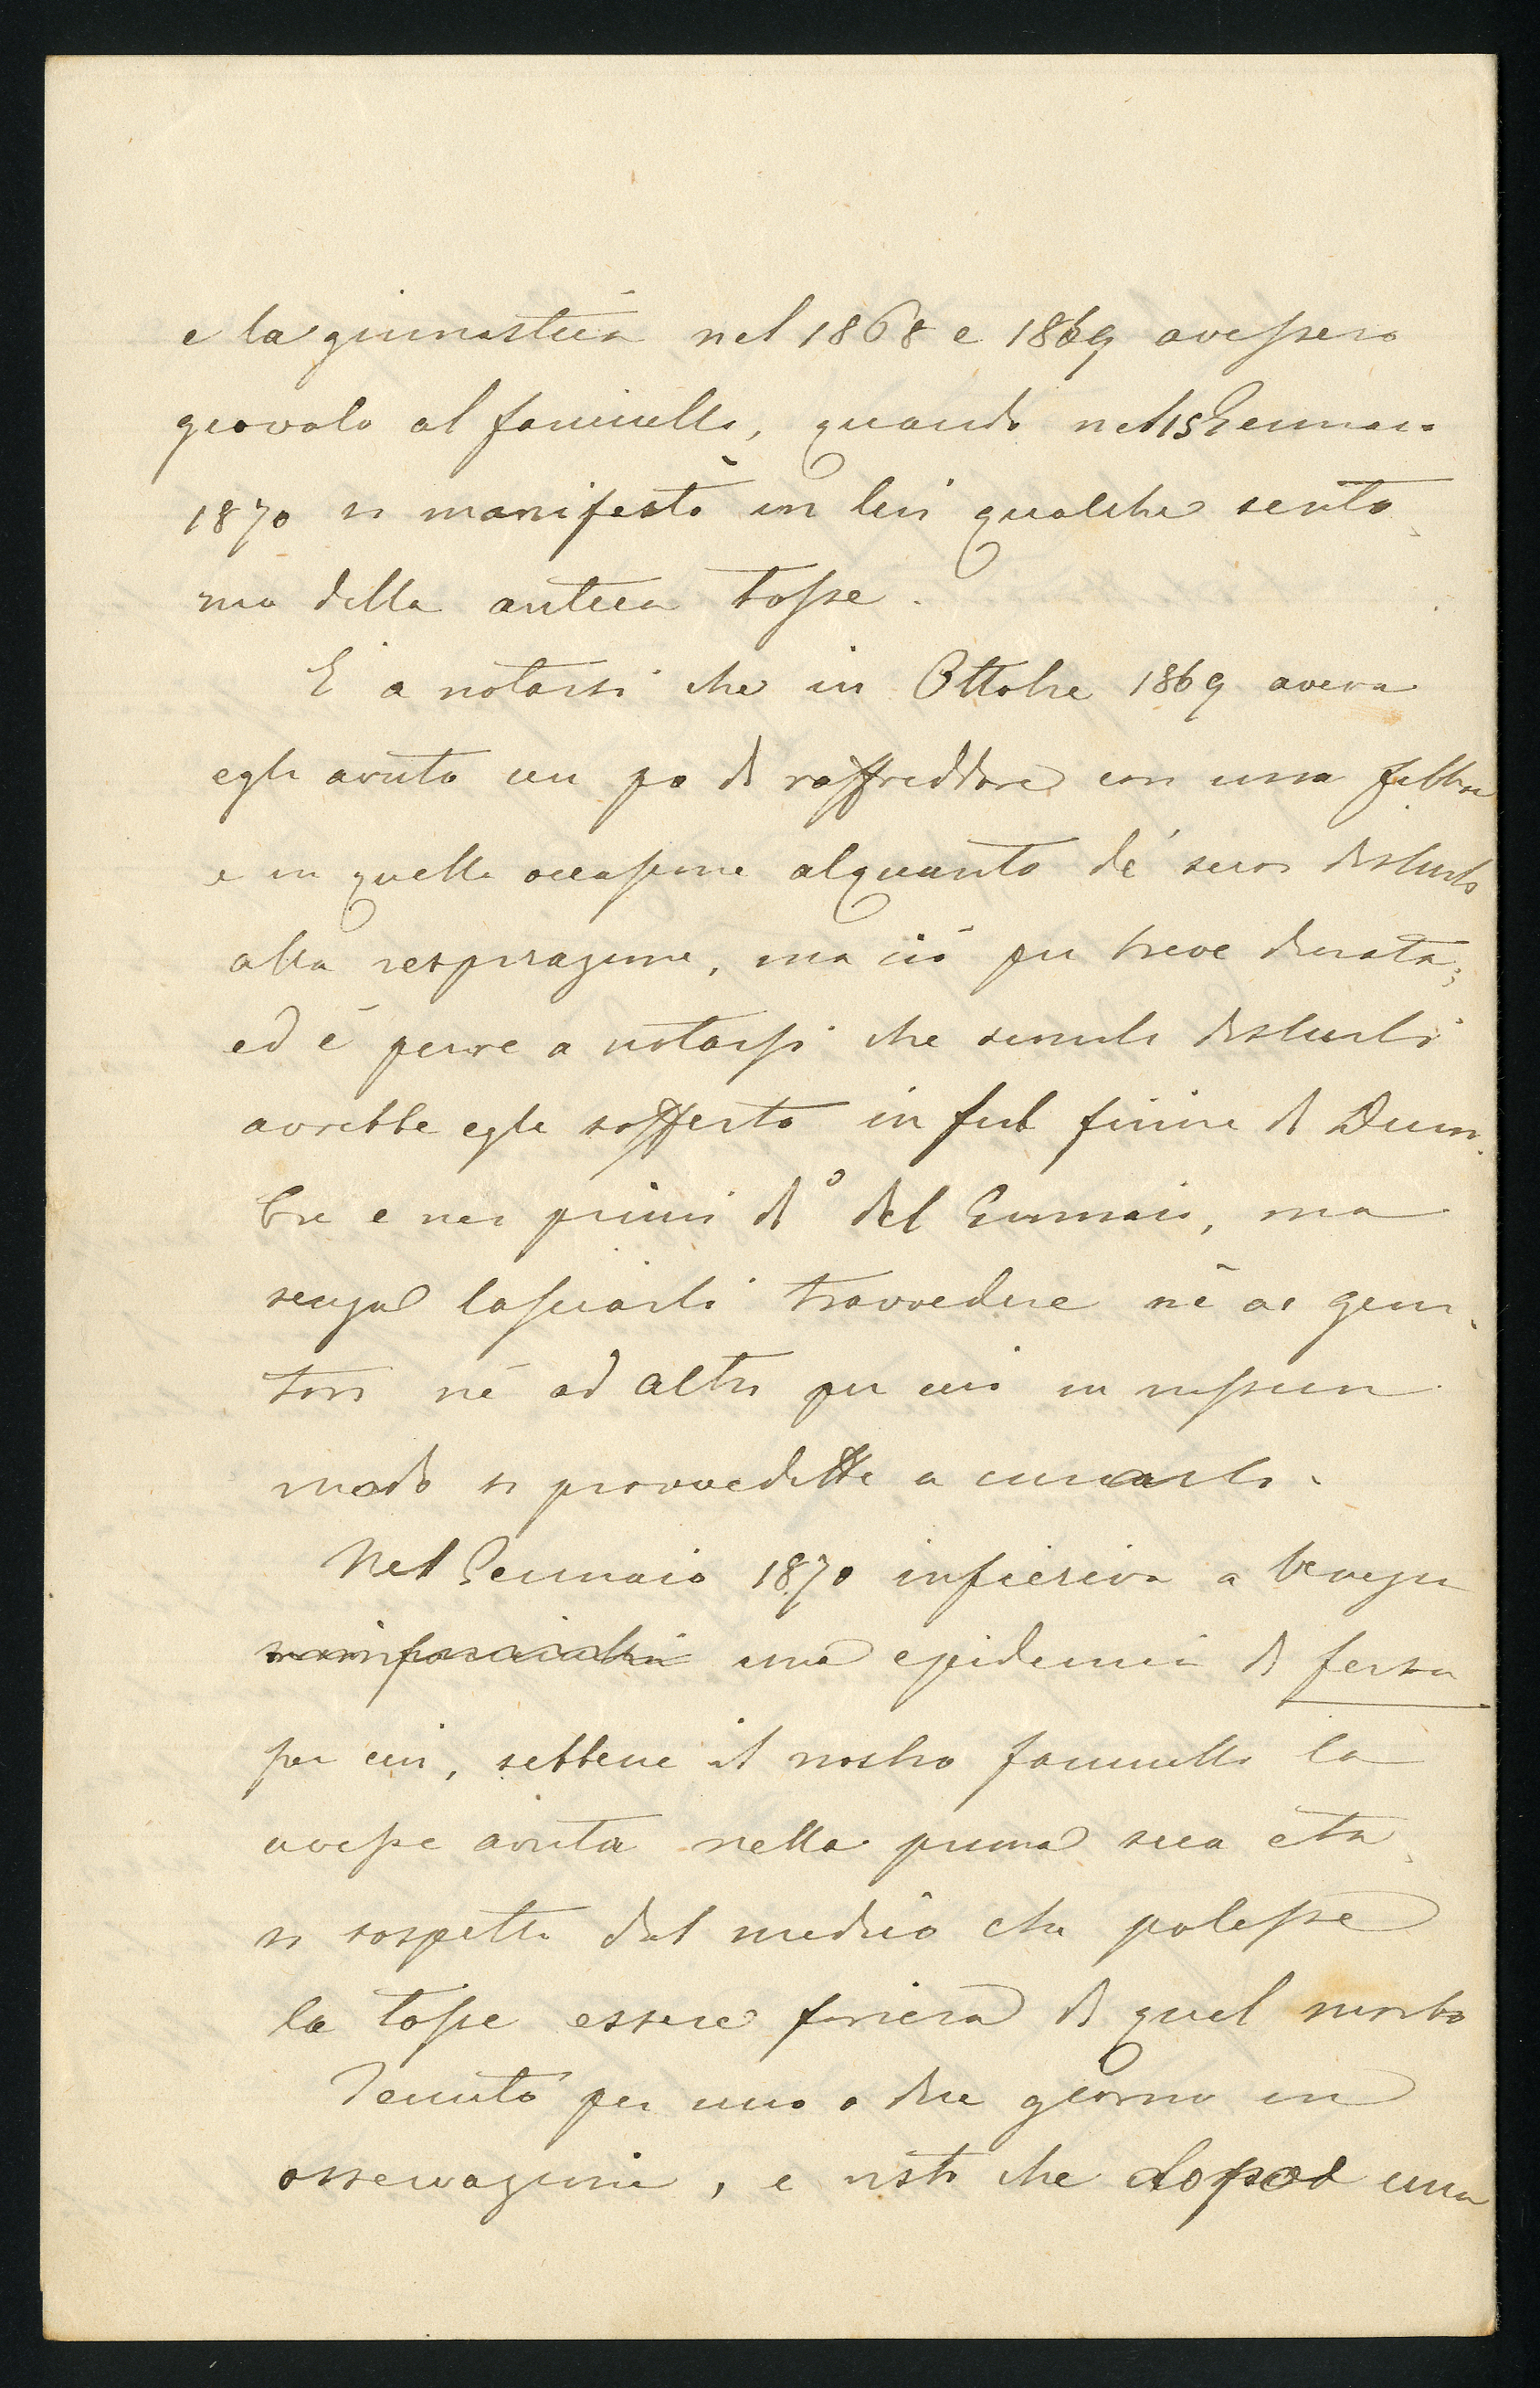 e la ginnastica nel 1868 e 1869 avessero
giovato al fanciullo, quando nel 15 Gennaio
1870 si manifestò in lui qualche sinto
ma della antica tosse.
È a notarsi che in Ottobre 1869 aveva
egli avuto un po di raffreddore con una febbre
e in quella occasione alquanto de' suoi disturbi
alla respirazione, ma ciò per breve durata;
ed è pure a notarsi che simili disturbi
avrebbe egli sofferto in sul finire di Dicem
bre e nei primi dì del Gennaio, ma
senza lasciarli travvedere nè ai geni
tori nè ad altri per cui in nessun
modo si provvedette a curarlo.
Nel Gennaio 1870 infieriva a Venezia
una epidemia di fersa
per cui, sebbene il nostro fanciullo la
avesse avuta nella prima sua età
si sospettò dal medico che potesse
la tosse essere foriera di quel morbo
Tenuto per uno o due giorni in
osservazione, e visto che dopo una